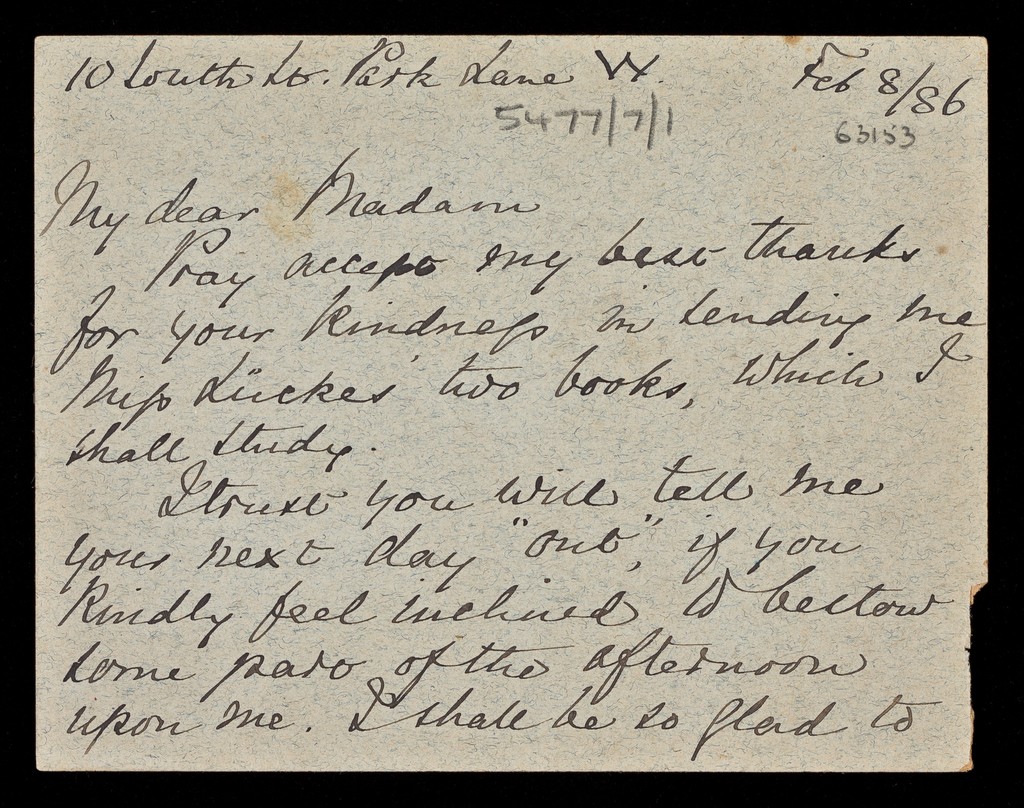 10 South St. Park Lane W. Feb 8/86
5477/7/1 63153
My dear Madam
Pray accept my best thanks
for your kindness in sending me
Miss Lückes' two books, which I
shall study.
I trust you will tell me
your next day "out", if you
kindly feel inclined to bestow
some part of the afternoon
upon me. I shall be so glad to